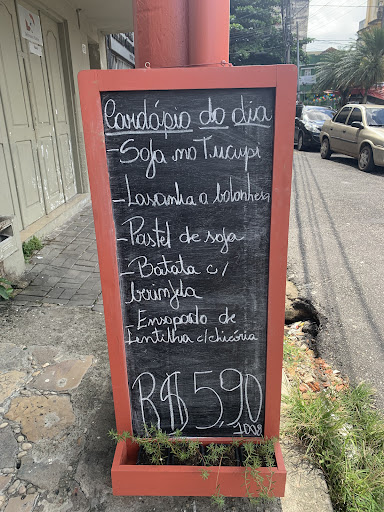 Cardápio do dia
- Soja no Tucupi
- Lasanha a bolonhesa
- Pastel de soja
- Batata c/
bourinjela
- Ensopado de
Lentilha c/chicória
R$ 5,90